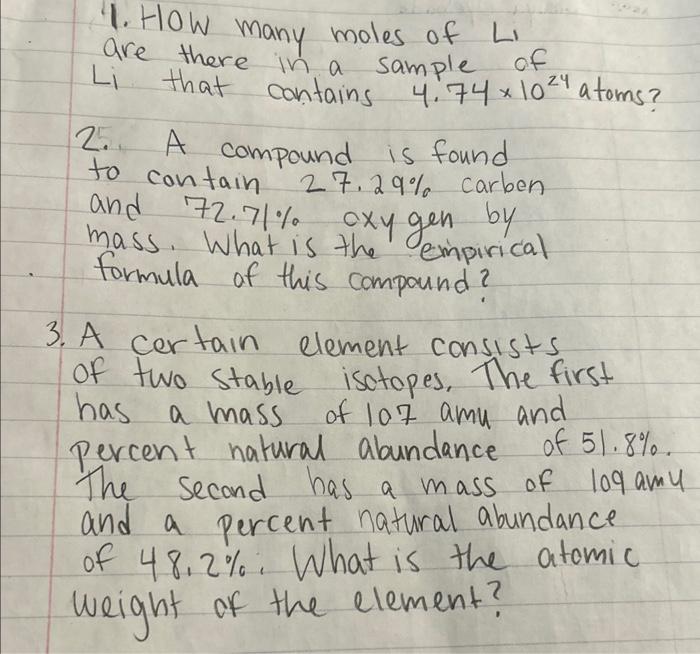 1. How many moles of Li
are there in a sample of
Li that contains 4.74 × 10²⁴ atoms?
2. A compound is found
to contain 27.29% carbon
and 72.71% oxygen by
mass. What is the empirical
formula of this compound?
3. A certain element consists
of two stable isotopes. The first
has a mass of 107 amu and
percent natural abundance of 51.8%.
The second has a mass of 109 amu
and a percent natural abundance
of 48.2%. What is the atomic
weight of the element?